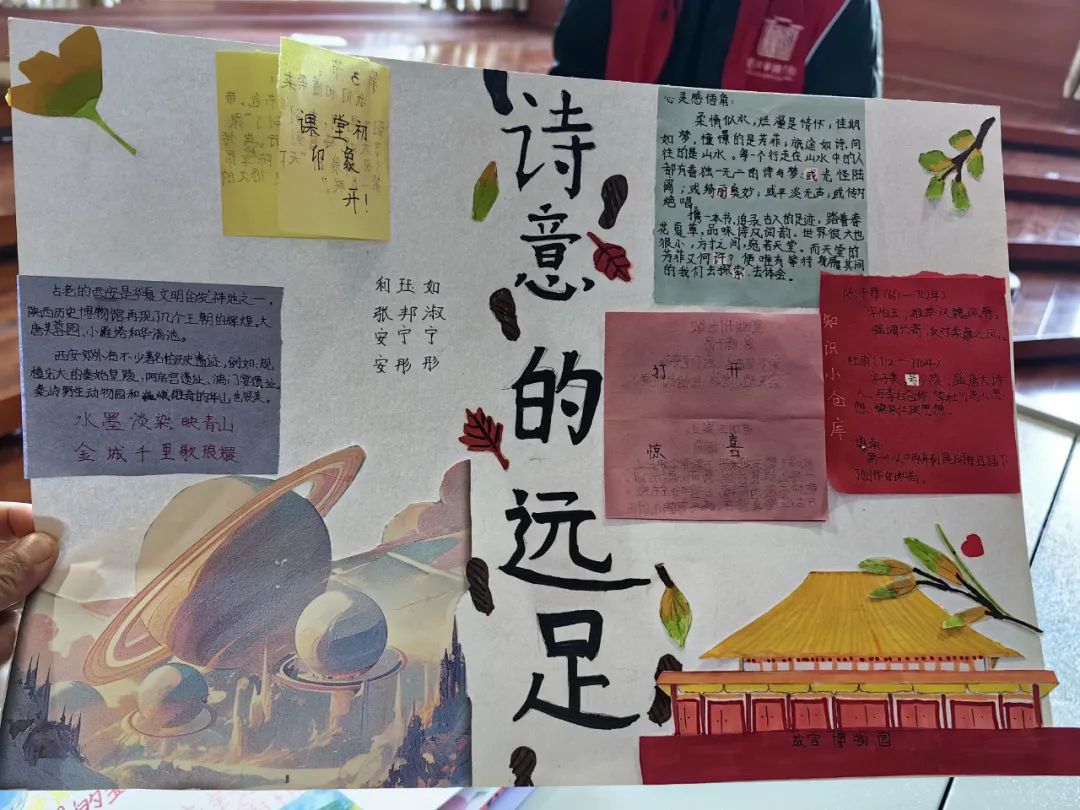 诗意的远足
课堂初
印象升!
古老的西安是华夏文明的发祥地之一,
陕西历史博物馆再现了几个王朝的辉煌。大
唐芙蓉园、小雁塔和华清池。
西安郊外有不少著名的历史遗迹,例如:规
模宏大的秦始皇陵、阿房宫遗址、鸿门宴遗址。
秦岭野生动物园和巍峨雄奇的华山也很美。
水墨淡染映青山
金城千里歌琅嬛
和珏如
张邦淑
安宁宁
安彤彤
心灵感悟角:
柔情似水,烂漫是情怀,佳期
如梦,憧憬的是芳菲,旅途如诗,向
往的是山水。每一个行走在山水中的人
都有着独一无二的诗与梦:或光怪陆
离;或绮丽奥妙;或平淡无声;或传为
绝唱。
携一本书,追寻古人的足迹,踏着春
花夏草,品味诗风词韵。世界很大也
很小,方寸之间,宛若天堂。而天堂的
芳菲又何许?便唯有等待身履其间
的我们去探索、去体会。
打开
惊喜
知识小仓库
陈子昂(661—702年)
字伯玉,推崇汉魏风骨,
杜甫(712—770年)
字子美,
人,与李白合称“李杜”,
故宫博物园